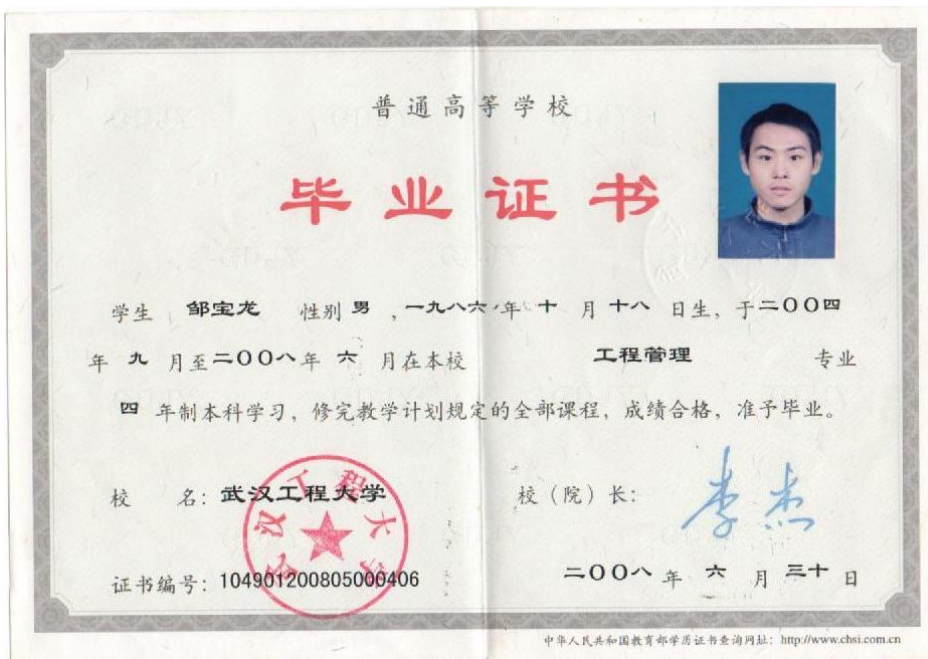 普通高等学校
毕业证书
学生 邹宝龙 性别 男 ,一九八六年 十 月 十八 日生, 于二〇〇四
年 九 月至二〇〇八年 六 月在本校 工程管理 专业
四 年制本科学习, 修完教学计划规定的全部课程, 成绩合格, 准予毕业。
校 名: 武汉工程大学
武汉工程大学
校(院)长: 李杰
证书编号: 104901200805000406
二〇〇八 年 六 月 三十 日
中华人民共和国教育部学历证书查询网址: http://www.chsi.com.cn